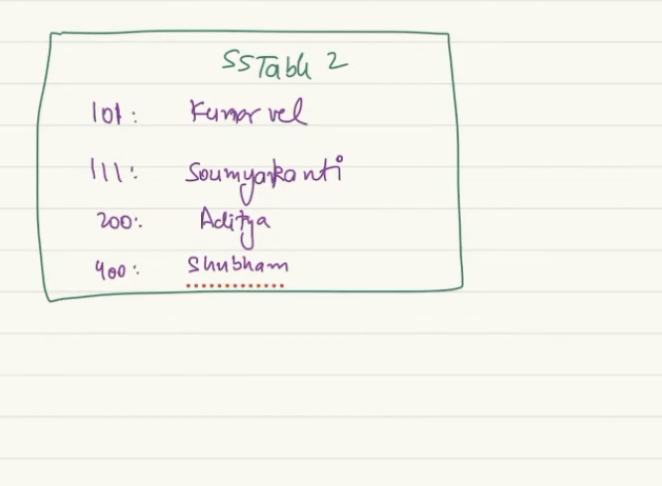 SSTable 2
101: Kumarvel
111: Soumyakanti
200: Aditya
400: Shubham